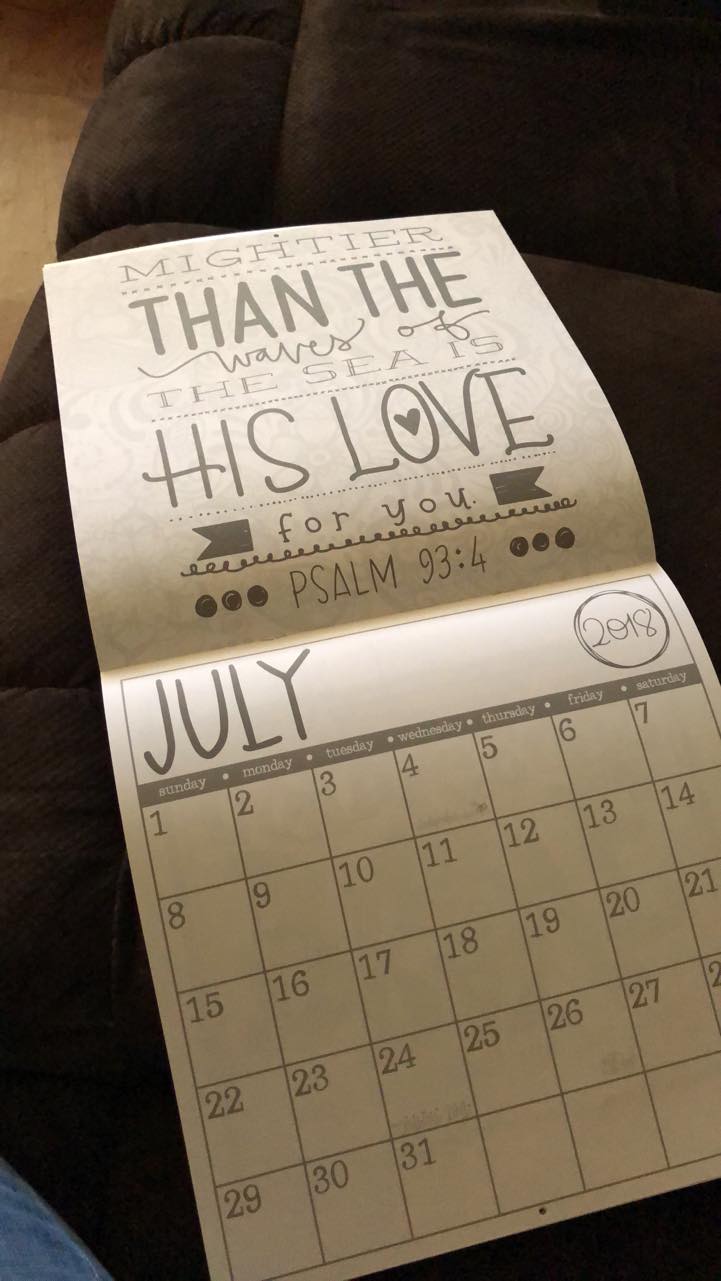 MIGHTIER
THAN THE
waves of
THE SEA IS
HIS LOVE
for you.
PSALM 93:4
JULY
2018
sunday • monday • tuesday • wednesday • thursday • friday • saturday
1 2 3 4 5 6 7
8 9 10 11 12 13 14
15 16 17 18 19 20 21
22 23 24 25 26 27
29 30 31